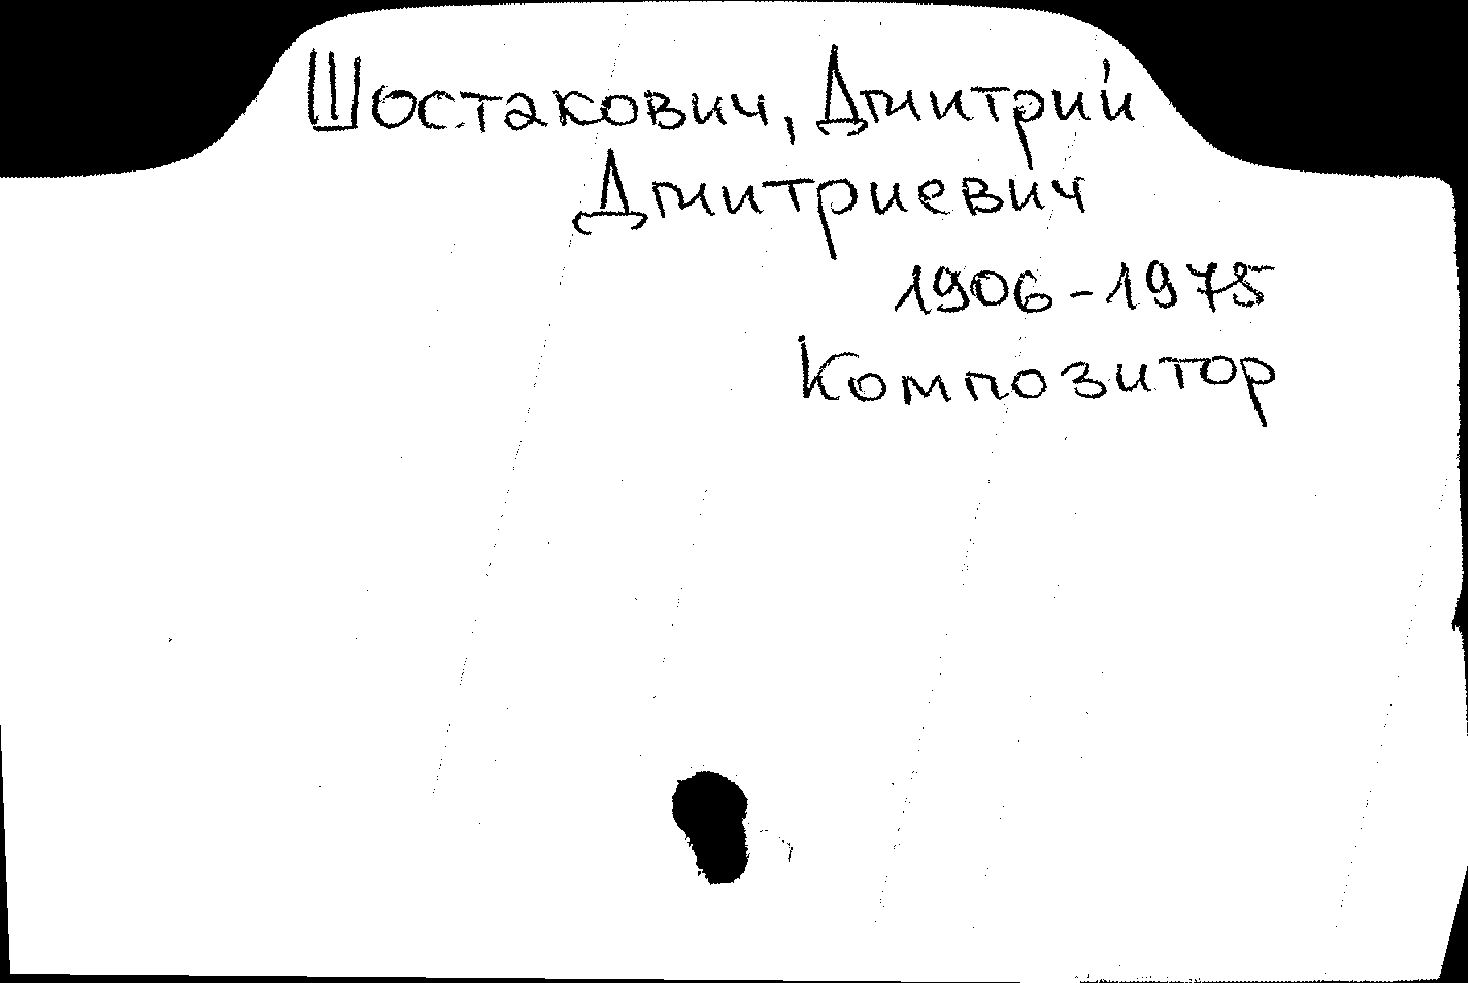 Шостакович, Дмитрий
Дмитриевич
1906-1975
Композитор